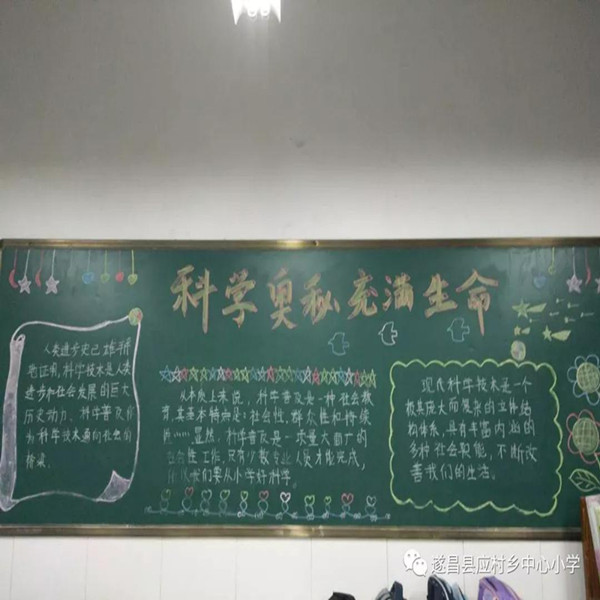 科学奥秘充满生命
人类进步史已雄辩
地证明,科学技术是人类
进步和社会发展的巨大
历史动力,科学普及作
为科学技术通向社会的
桥梁.
从本质上来说,科学普及是一种社会教
育,其基本特点是:社会性,群众性和持续
显然,科学普及是一项量大面广的
性工作,只有少数专业人员才能完成,
我们要从小学好科学。
现代科学技术是一个
极其庞大而复杂的立体结
构体系,具有丰富内涵的
多种社会职能,不断改
善我们的生活。
遂昌县应村乡中心小学